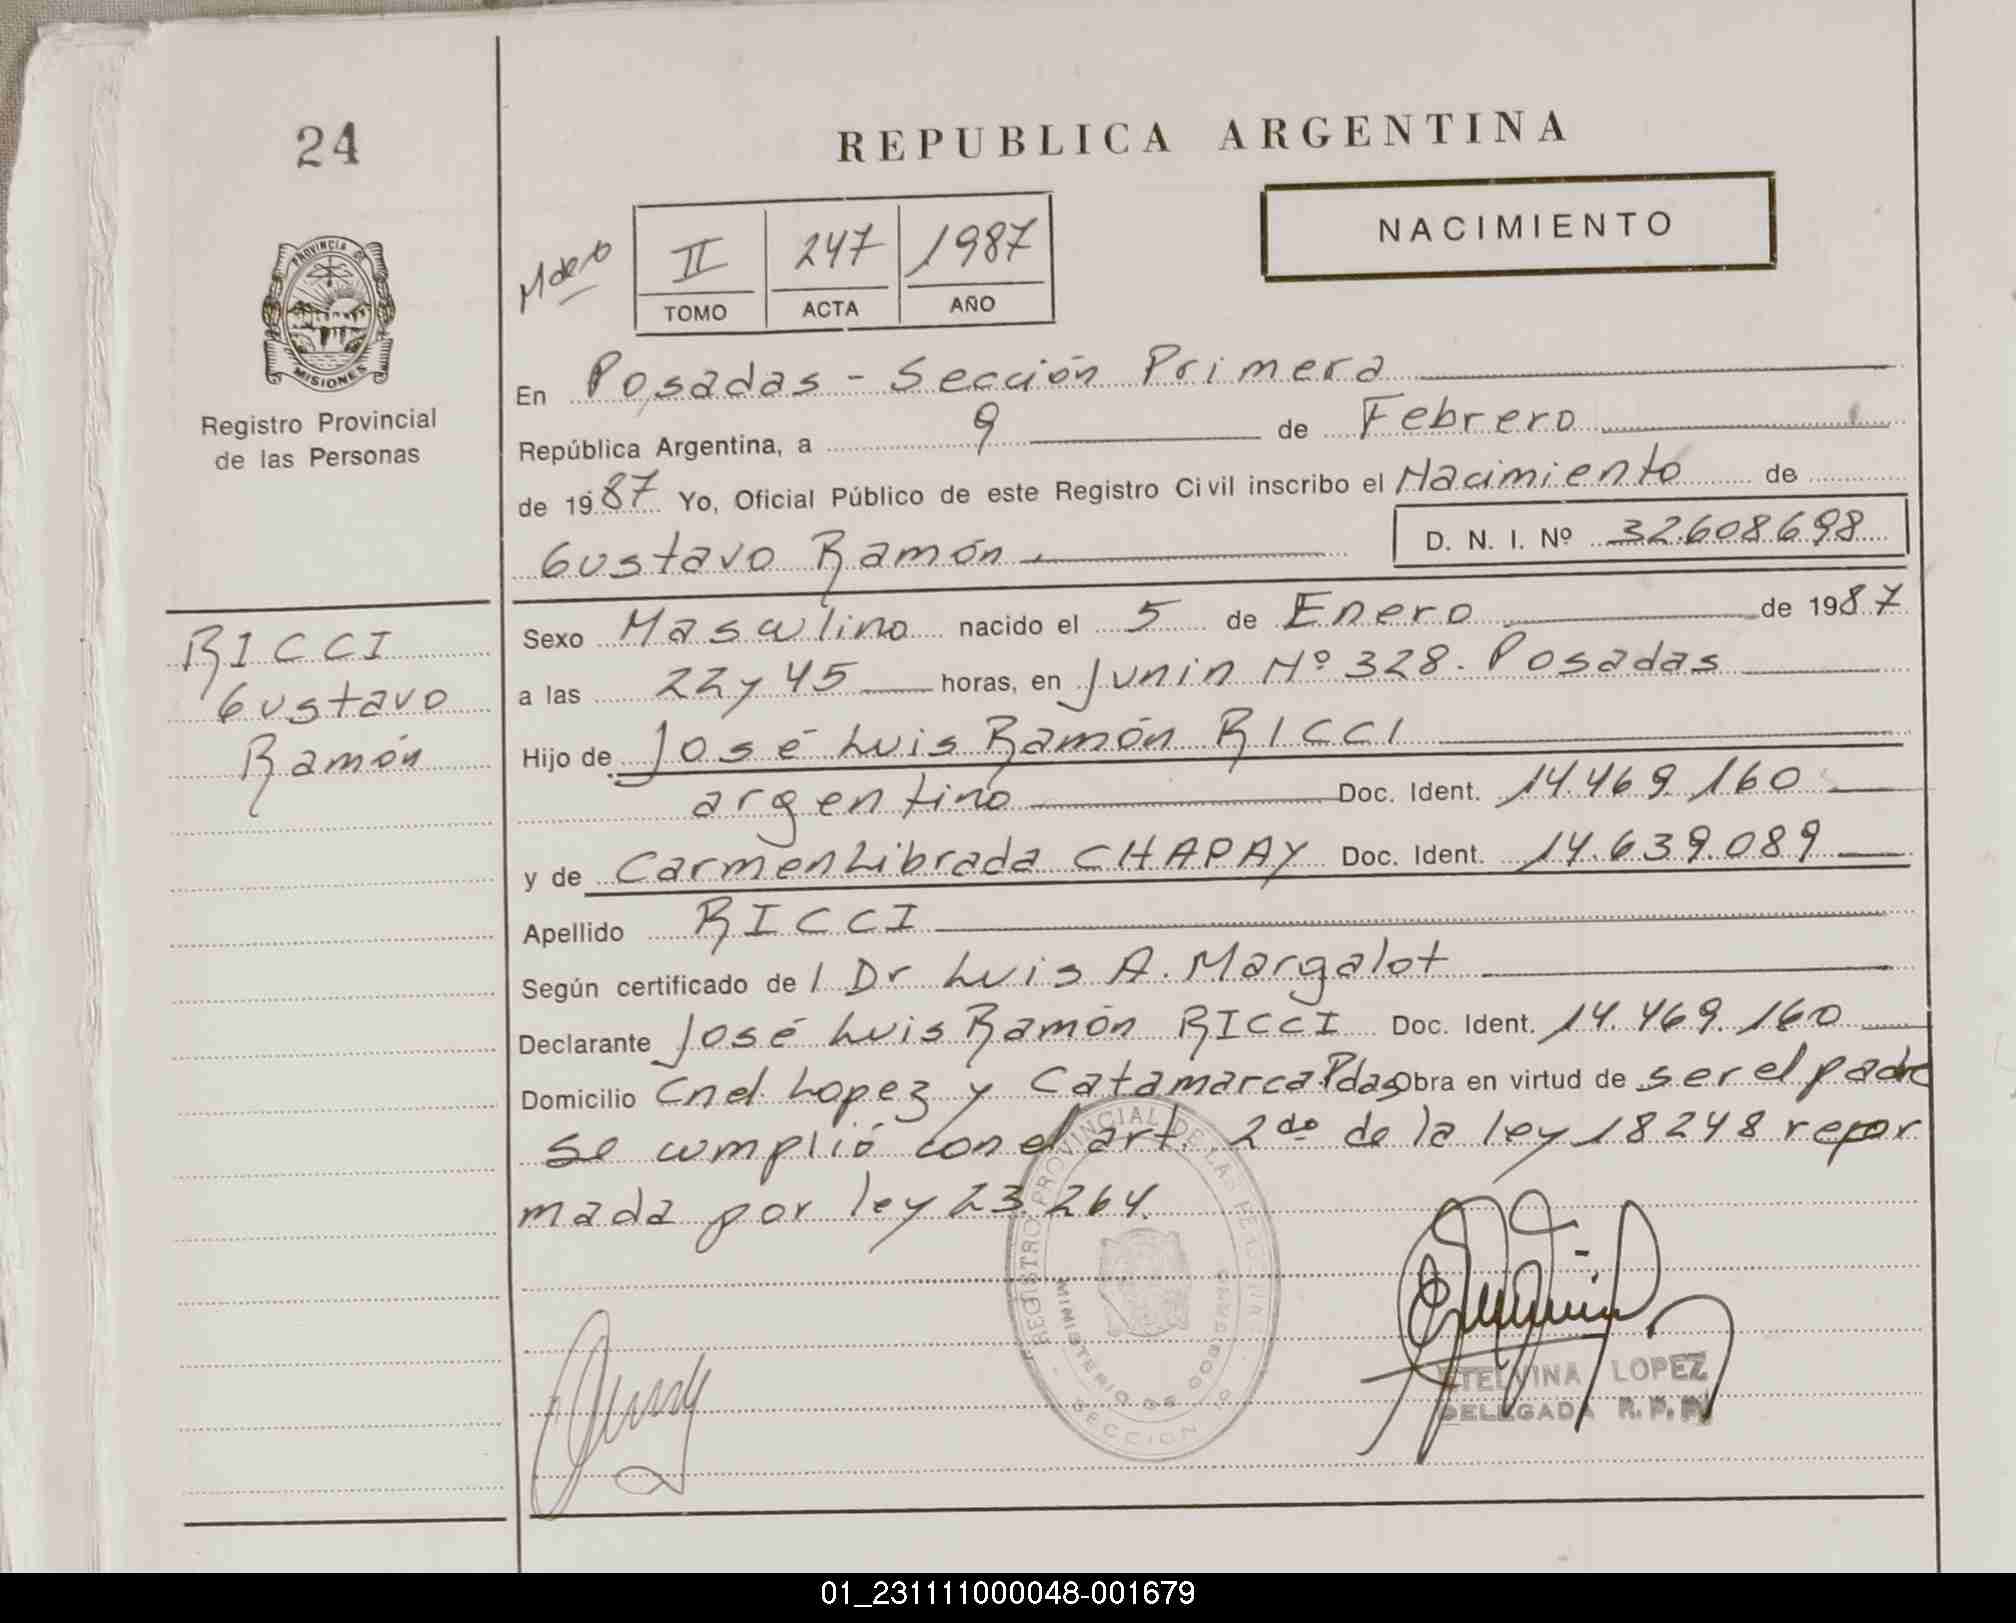 24
REPUBLICA ARGENTINA
NACIMIENTO
II 247 1987
TOMO ACTA AÑO
PROVINCIA DE
MISIONES
Registro Provincial
de las Personas
En Posadas - Sección Primera
República Argentina, a 9 de Febrero
de 1987 Yo, Oficial Público de este Registro Civil inscribo el Nacimiento de
Gustavo Ramón D. N. I. Nº 32.608.698
RICCI
Gustavo
Ramón
Sexo Masculino nacido el 5 de Enero de 1987
a las 22 y 45 horas, en Junin Nº 328. Posadas
Hijo de José Luis Ramón RICCI
argentino Doc. Ident. 14.469.160
y de Carmen Librada CHAPAY Doc. Ident. 14.639.089
Apellido RICCI
Según certificado de l Dr Luis A. Margalot
Declarante José Luis Ramón RICCI Doc. Ident. 14.469.160
Domicilio Cnel. Lopez y Catamarca. Pdas Obra en virtud de ser el padre
se cumplió con el art. 2do de la ley 18248 refor
mada por ley 23.264.
REGISTRO PROVINCIAL DE LAS PERSONAS
MINISTERIO DE GOBIERNO
SECCION
ETELVINA LOPEZ
DELEGADA R. P. P.
01_231111000048-001679